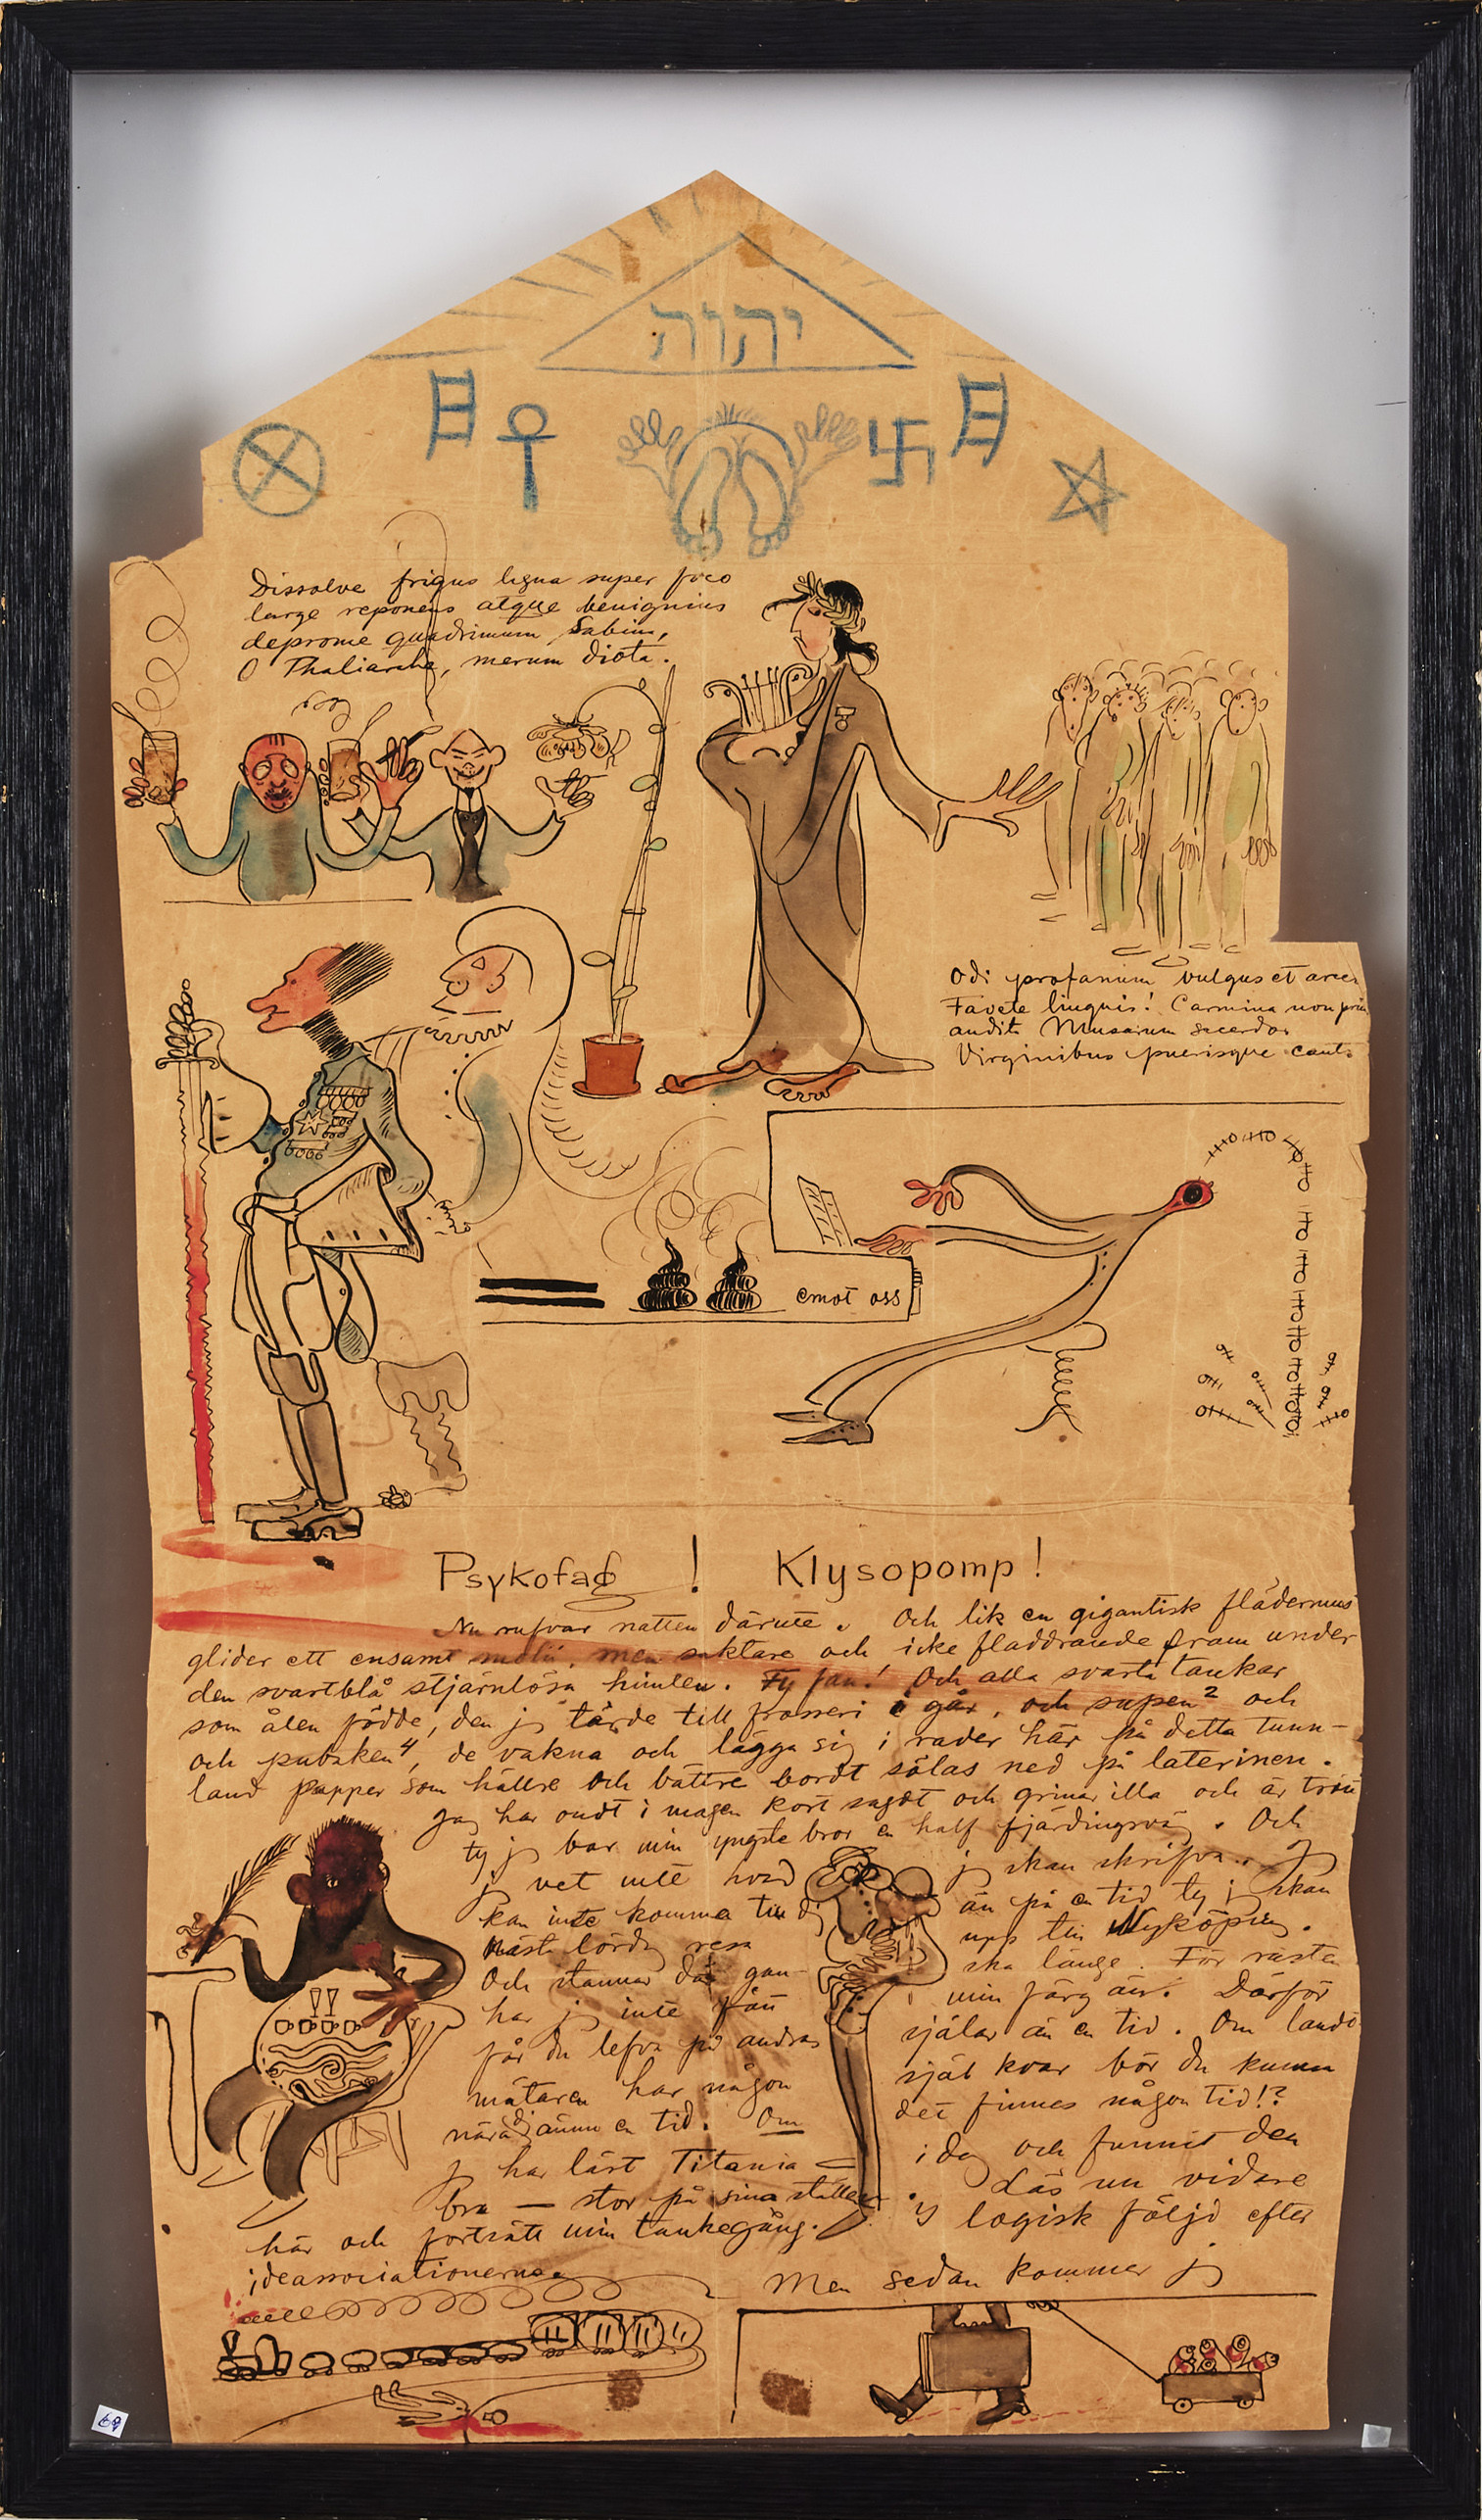 יהוה
Dissolve frigus ligna super foco
large reponens atque benignius
deprome quadrimum Sabina,
O Thaliarche, merum diota.
Odi profanum vulgus et arceo
Favete linguis! Carmina non prius
audita Musarum sacerdos
Virginibus puerisque canto
emot oss
Psykofag! Klysopomp!
Nu rufvar natten därute. Och lik en gigantisk flädermus
glider ett ensamt moln, men saktare och icke fladdrande fram under
den svartblå stjärnlösa himlen. Fy fan! Och alla svarta tankar
som ålen födde, den jag tärde till frosseri i går, och supen 2 och
och pubsken 4, de vakna och lägga sig i rader här på detta tunn-
land papper som hällre och bättre bordt sölas ned på laterinen.
Jag har ondt i magen kort sagdt och grinar illa och är trött
ty jag bar min yngste bror en half fjärdingsväg. Och
jag vet inte hvad jag skan skrifva.. Jag
kan inte komma till dig än på en tid ty jag skan
Nästa lördag resa upp till Nyköping.
Och stannar där gan- ska länge. För rästen
har jag inte fått min färg än. Därför
får du lefva på andras själar än en tid. Om landt-
mätaren har någon själ kvar bör du kunna
nära dig ännu en tid. Om det finnes någon tid!?
Jag har läst Titania i dag och funnit den
bra — stor på sina ställen. Läs nu vidare
här och fortsätt min tankegång. i logisk följd efter
ideassociationerna
Men sedan kommer jag
69